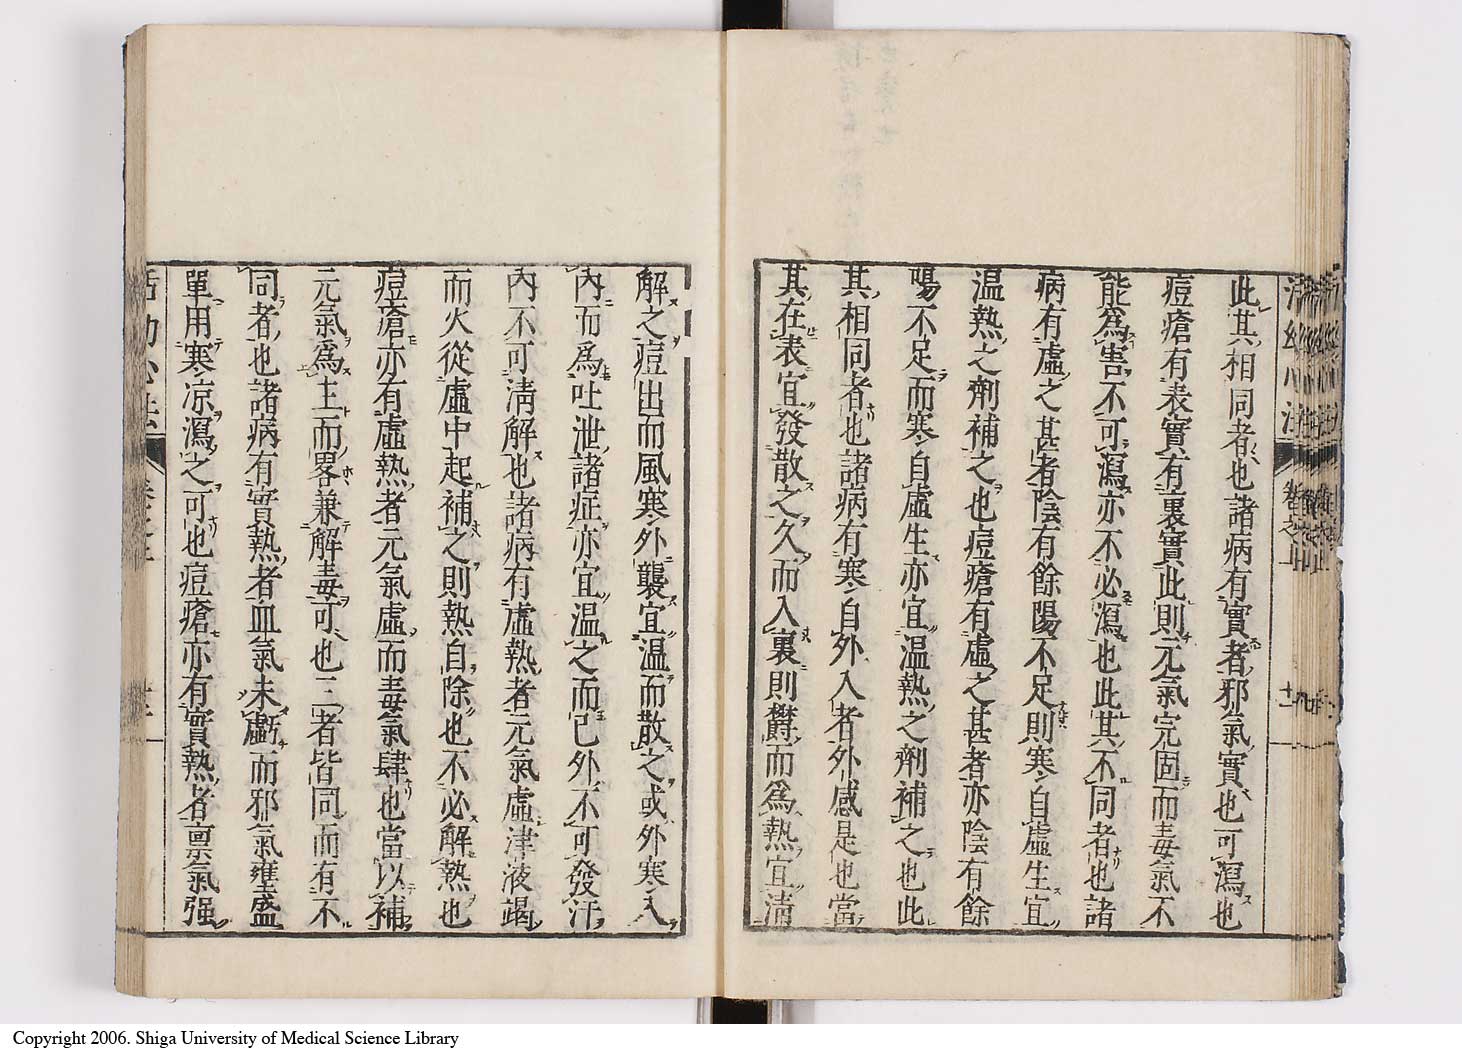 此其相同者也諸病有實者邪氣實也可瀉也
痘瘡有表實有裏實此則元氣完固而毒氣不
能爲害不可瀉亦不必瀉也此其不同者也諸
病有虛之甚者陰有餘陽不足則寒自虛生宜
温熱之劑補之也痘瘡有虛之甚者亦陰有餘
陽不足而寒自虛生亦宜温熱之劑補之也此
其相同者也諸病有寒自外入者外感是也當
其在表宜發散之久而入裏則欝而爲熱宜淸
解之痘出而風寒外襲宜温而散之或外寒入
內而爲吐泄諸症亦宜温之而已外不可發汗
內不可淸解也諸病有虛熱者元氣虛津液竭
而火從虛中起補之則熱自除也不必解熱也
痘瘡亦有虛熱者元氣虛而毒氣肆也當以補
元氣爲主而畧兼解毒可也三者皆同而有不
同者也諸病有實熱者血氣未虧而邪氣壅盛
單用寒凉瀉之可也痘瘡亦有實熱者禀氣强
Copyright 2006. Shiga University of Medical Science Library